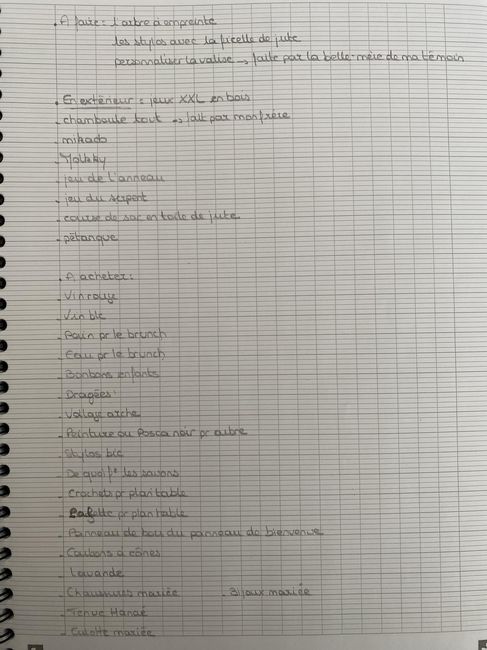 . A faire : l'arbre à empreinte
les stylos avec la ficelle de jute
personnaliser la valise -> faite par la belle-mère de ma témoin
. En extérieur : jeux XXL en bois
- chamboule tout -> fait par mon frère
- mikado
- Molkky
- jeu de l'anneau
- jeu du serpent
- course de sac en toile de jute
- pétanque
. A acheter :
- Vin rouge
- Vin blc
- Pain pr le brunch
- Eau pr le brunch
- Bonbons enfants
- Dragées
- Voilage arche
- Peinture ou Posca noir pr arbre
- Stylos bic
- De quoi les savons
- Crochets pr plan table
- pr plan table
- Panneau de bois du panneau de bienvenue
- à cônes
- Lavande
- Chaussures mariée - Bijoux mariée
- Tenue Hanaé
- Culotte mariée